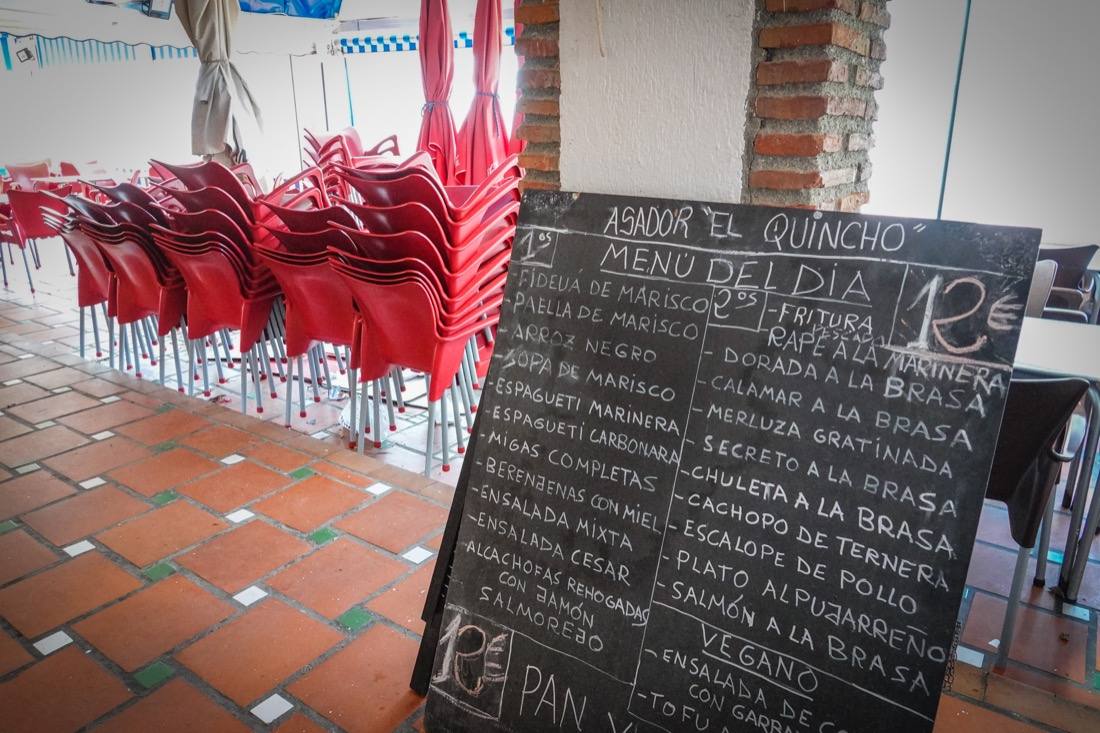 ASADOR "EL QUINCHO"
MENÚ DEL DIA
12€
1os
-FIDEUÁ DE MARISCO
-PAELLA DE MARISCO
-ARROZ NEGRO
SOPA DE MARISCO
-ESPAGUETI MARINERA
-ESPAGUETI CARBONARA
-MIGAS COMPLETAS
-BERENJENAS CON MIEL
-ENSALADA MIXTA
-ENSALADA CESAR
ALCACHOFAS REHOGADAS
CON JAMÓN
SALMOREJO
12€
PAN
2os
-FRITURA
PESCAO
RAPE A LA MARINERA
- DORADA A LA BRASA
- CALAMAR A LA BRASA
- MERLUZA GRATINADA
- SECRETO A LA BRASA
- CHULETA A LA BRASA
- CACHOPO DE TERNERA
- ESCALOPE DE POLLO
- PLATO ALPUJARREÑO
- SALMÓN A LA BRASA
VEGANO
-ENSALADA DE
CON
-TOFU